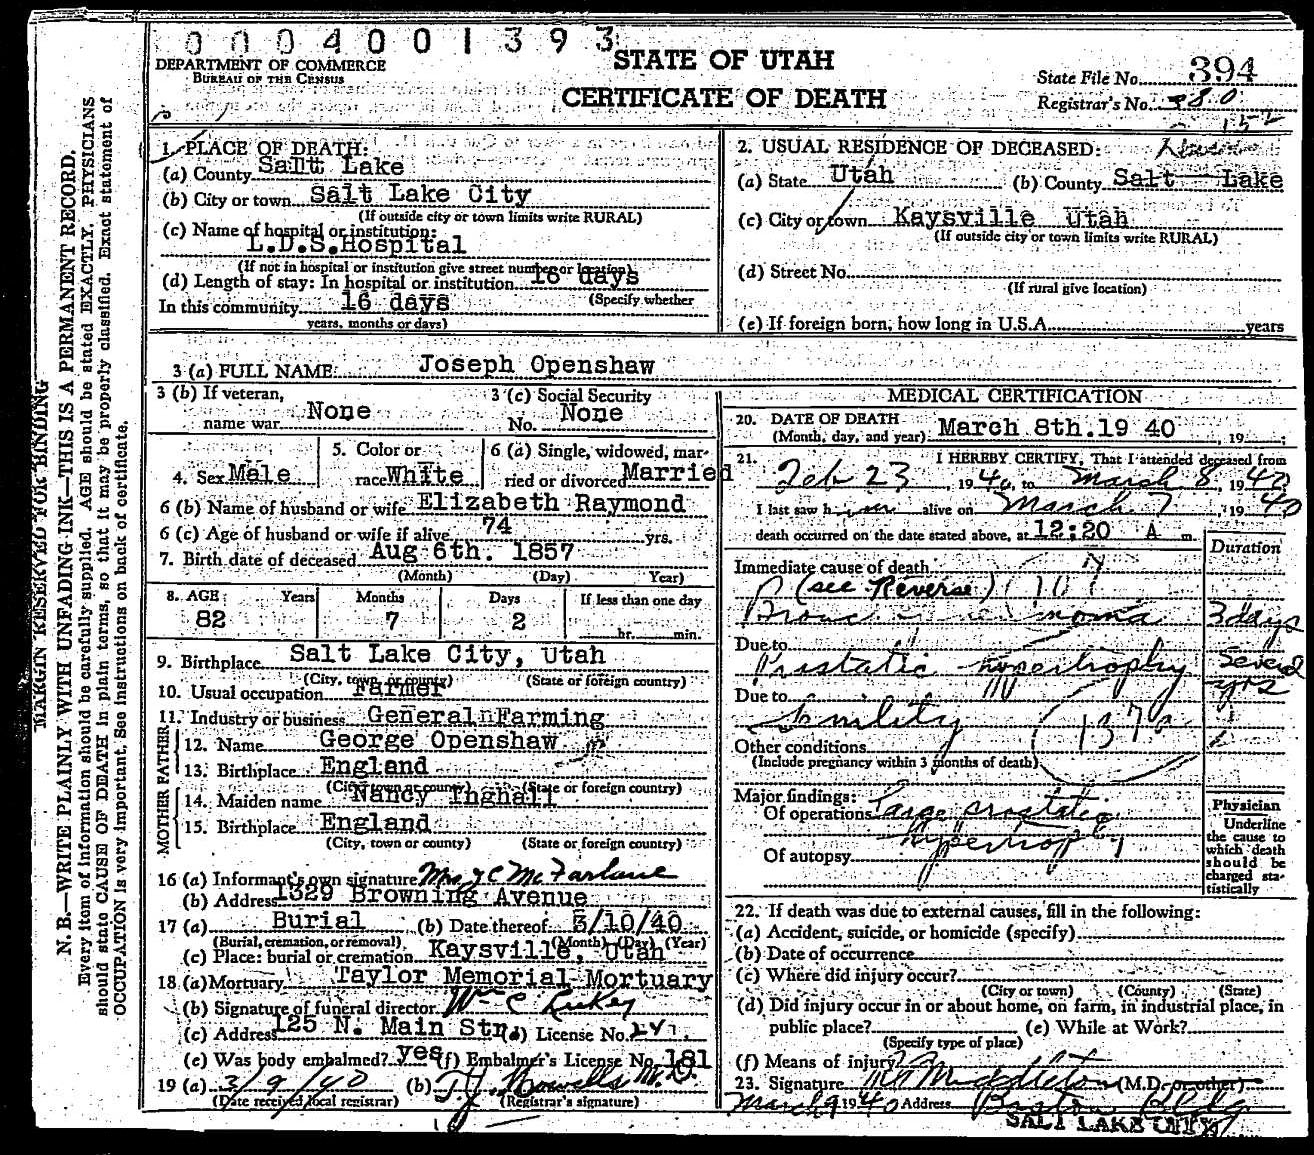 0004001393
STATE OF UTAH
CERTIFICATE OF DEATH
DEPARTMENT OF COMMERCE
BUREAU OF THE CENSUS
State File No. 394
Registrar's No. 380
152
1. PLACE OF DEATH:
(a) County Sallt Lake
(b) City or town Salt Lake City
(If outside city or town limits write RURAL)
(c) Name of hospital or institution:
L.D.S. Hospital
(If not in hospital or institution give street number or location)
(d) Length of stay: In hospital or institution 16 days
(Specify whether
In this community 16 days
years, months or days)
2. USUAL RESIDENCE OF DECEASED:
(a) State Utah (b) County Salt Lake
(c) City or town Kaysville Utah
(If outside city or town limits write RURAL)
(d) Street No.
(If rural give location)
(e) If foreign born, how long in U.S.A. years
3 (a) FULL NAME Joseph Openshaw
3 (b) If veteran, name war None
3 (c) Social Security No. None
4. Sex Male
5. Color or race White
6 (a) Single, widowed, married or divorced Married
6 (b) Name of husband or wife Elizabeth Raymond
6 (c) Age of husband or wife if alive 74 yrs.
7. Birth date of deceased Aug 6th. 1857
(Month) (Day) (Year)
8. AGE: Years Months Days If less than one day
82 7 2 hr. min.
9. Birthplace Salt Lake City, Utah
(City, town, or county) (State or foreign country)
10. Usual occupation Farmer
11. Industry or business General Farming
FATHER
12. Name George Openshaw
13. Birthplace England
(City, town or county) (State or foreign country)
MOTHER
14. Maiden name Nancy Inghall
15. Birthplace England
(City, town or county) (State or foreign country)
16 (a) Informant's own signature Mrs J C McFarlane
(b) Address 1329 Browning Avenue
17 (a) Burial (b) Date thereof 3/10/40
(Burial, cremation, or removal) (Month) (Day) (Year)
(c) Place: burial or cremation Kaysville, Utah
18 (a) Mortuary Taylor Memorial Mortuary
(b) Signature of funeral director Wm C
(c) Address 125 N. Main Str. (d) License No.
(e) Was body embalmed? yes (f) Embalmer's License No. 181
19 (a) 3/9/40 (b) T.J. Howells M.D.
(Date received local registrar) (Registrar's signature)
MEDICAL CERTIFICATION
20. DATE OF DEATH
(Month, day, and year) March 8th. 19 40, 19
21. I HEREBY CERTIFY, That I attended deceased from
Feb 23, 1940, to March 8, 1940
I last saw him alive on March 7, 1940
death occurred on the date stated above, at 12:20 A m.
Duration
Immediate cause of death
(see Reverse) 107
3 days
Due to
Prostatic hypertrophy Several yrs
Due to
Senility 137a
Other conditions
(Include pregnancy within 3 months of death)
Major findings:
Of operations Large prostatic hypertrophy
Of autopsy
Physician
Underline
the cause to
which death
should be
charged sta-
tistically
22. If death was due to external causes, fill in the following:
(a) Accident, suicide, or homicide (specify)
(b) Date of occurrence
(c) Where did injury occur?
(City or town) (County) (State)
(d) Did injury occur in or about home, on farm, in industrial place, in
public place? (e) While at Work?
(Specify type of place)
(f) Means of injury
23. Signature Middleton (M.D. or other)
March 9 1940 Address Boston Bldg
SALT LAKE CITY
MARGIN RESERVED FOR BINDING
N. B.—WRITE PLAINLY WITH UNFADING INK—THIS IS A PERMANENT RECORD.
Every item of information should be carefully supplied. AGE should be stated EXACTLY. PHYSICIANS
should state CAUSE OF DEATH in plain terms, so that it may be properly classified. Exact statement of
OCCUPATION is very important. See instructions on back of certificate.